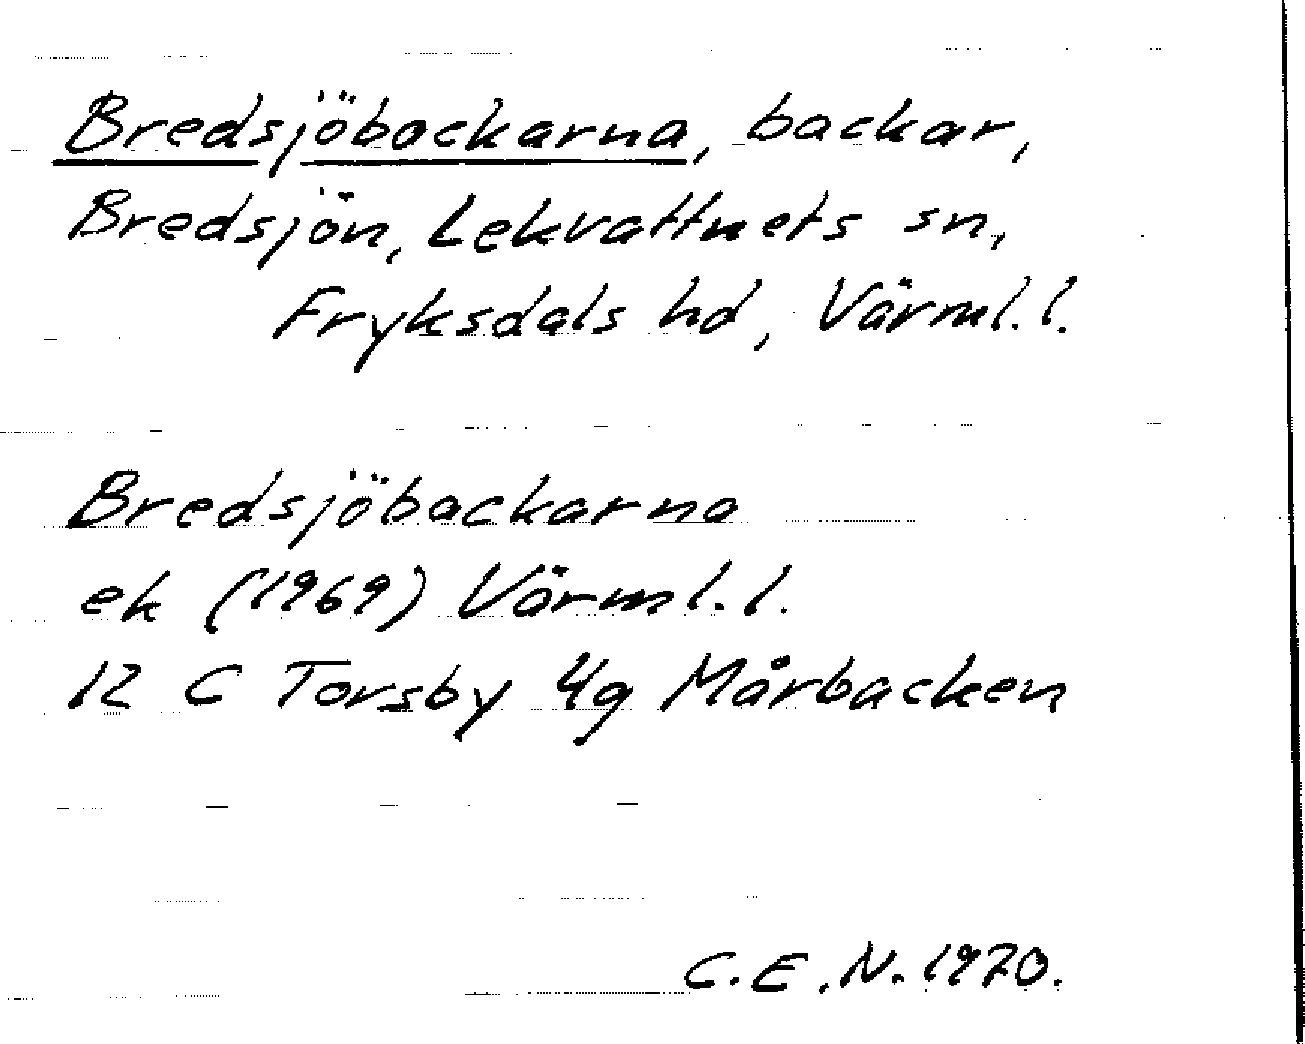 Bredsjöbackarna, backar,
Bredsjön, Lekvattnets sn,
Fryksdals hd, Värml.l.
Bredsjöbackarna
ek (1969) Värml.l.
12 C Torsby 4g Mårbacken
C.E.N. 1970.